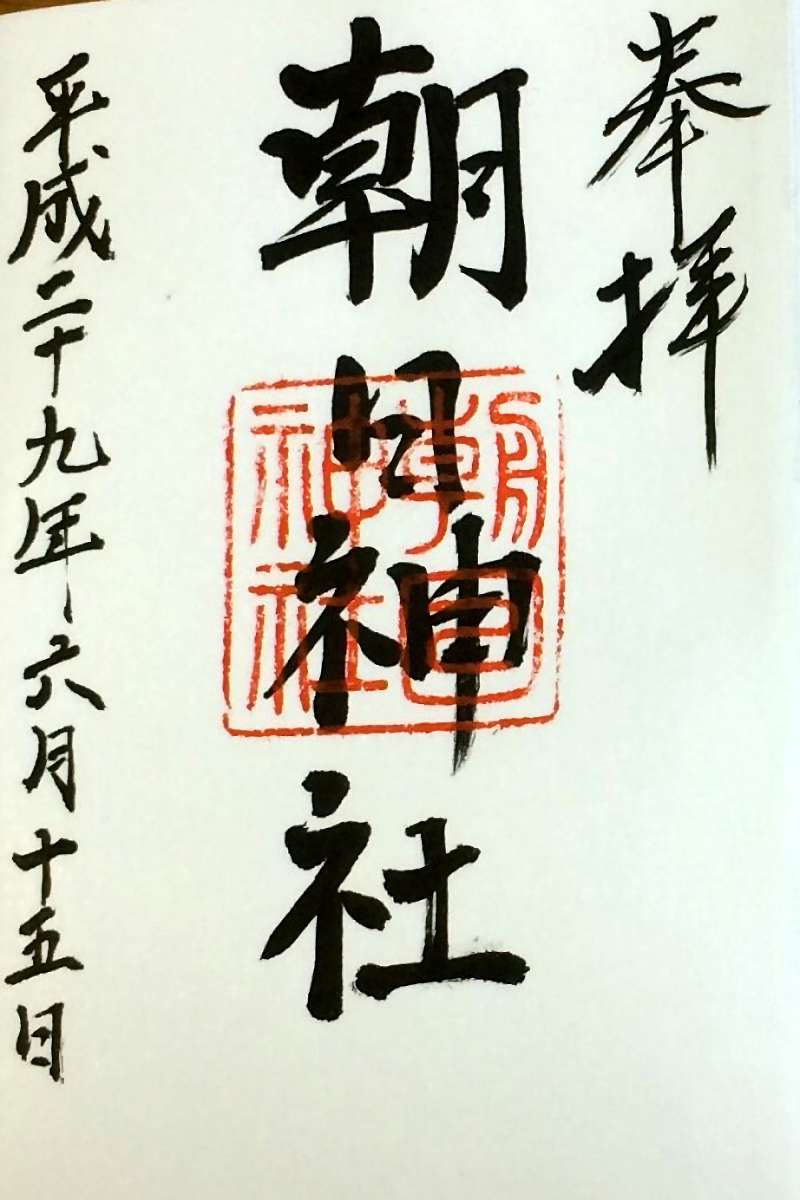 奉拝
朝日神社
朝日
神社
平成二十九年六月十五日